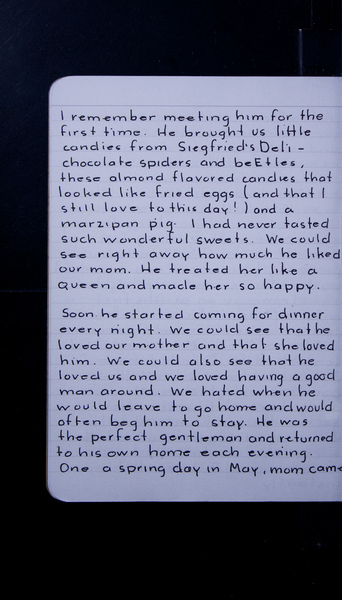 I remember meeting him for the
first time. He brought us little
candies from Siegfried's Deli -
chocolate spiders and beEtles,
these almond flavored candies that
looked like fried eggs (and that I
still love to this day!) and a
marzipan pig. I had never tasted
such wonderful sweets. We could
see right away how much he liked
our mom. He treated her like a
Queen and made her so happy.
Soon he started coming for dinner
every night. We could see that he
loved our mother and that she loved
him. We could also see that he
loved us and we loved having a good
man around. We hated when he
would leave to go home and would
often beg him to stay. He was
the perfect gentleman and returned
to his own home each evening.
One a spring day in May, mom came